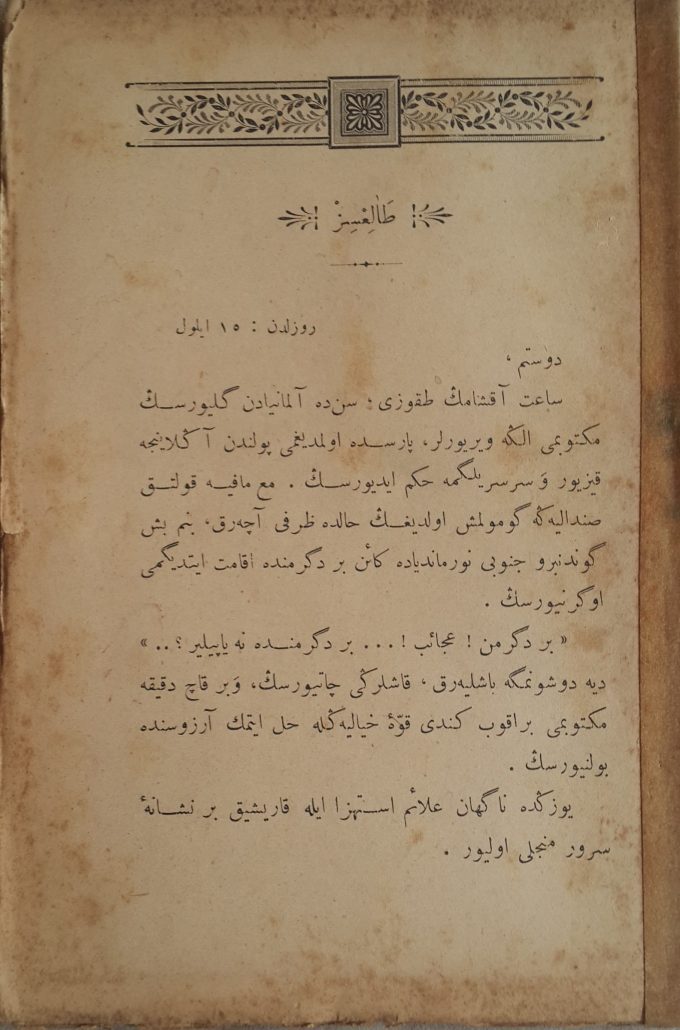 طَالِعْسِزْ
روزلدن : ١٥ ايلول
دوستم ،
ساعت آقشامڭ طقوزى ؛ سن‌ده آلمانيادن گليورسڭ
مكتوبمى الڭه ويريورلر، پارسده اولمديغمى پولندن آڭلاينجه
قيزيور وَ سرسريلگمه حكم ايديورسڭ . مع مافيه قولتق
صنداليه‌ڭه گومولمش اولديغڭ حالده ظرفى آچه‌رق، بنم بش
گوندنبرو جنوبى نورمانديا‌ده كائن بر دگرمنده اقامت ايتديگمى
اوگرنيورسڭ .
« بر دگرمن ! عجائب ! ... بر دگرمنده نه ياپيلير ؟ .. »
ديه دوشونمگه باشليه‌رق ، قاشلرڭى چاتيورسڭ، وَبر قاچ دقيقه
مكتوبمى براقوب كندى قوّۀ خياليه‌ڭله حل ايتمك آرزوسنده
بولنيورسڭ .
يوزڭده ناگهان علائم استهزا ايله قاريشيق بر نشانۀ
سرور منجلى اوليور .